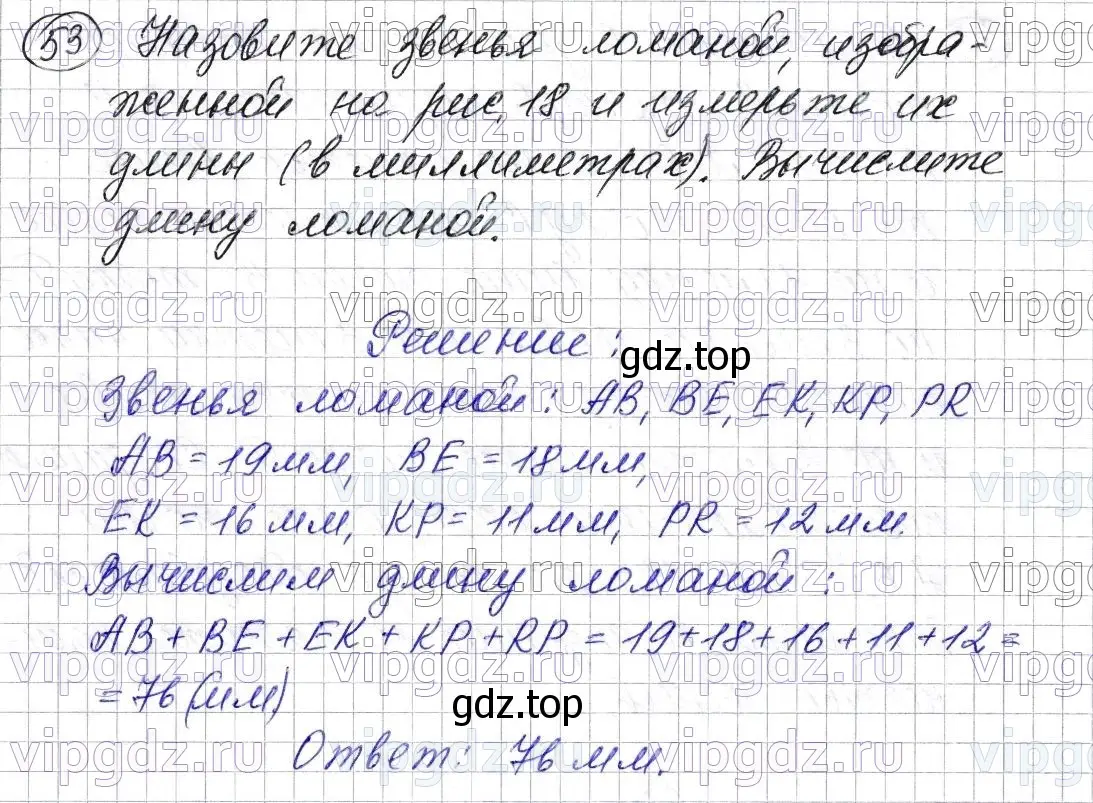 53 Назовите звенья ломаной, изобра-
женной на рис. 18 и измерьте их
длины (в миллиметрах). Вычислите
длину ломаной.
Решение:
gdz.top
Звенья ломаной: AB, BE, EK, KP, PR
AB = 19 мм, BE = 18 мм,
EK = 16 мм, KP = 11 мм, PR = 12 мм.
Вычислим длину ломаной:
AB + BE + EK + KP + RP = 19 + 18 + 16 + 11 + 12 =
= 76 (мм)
gdz.top
Ответ: 76 мм.
vipgdz.ru